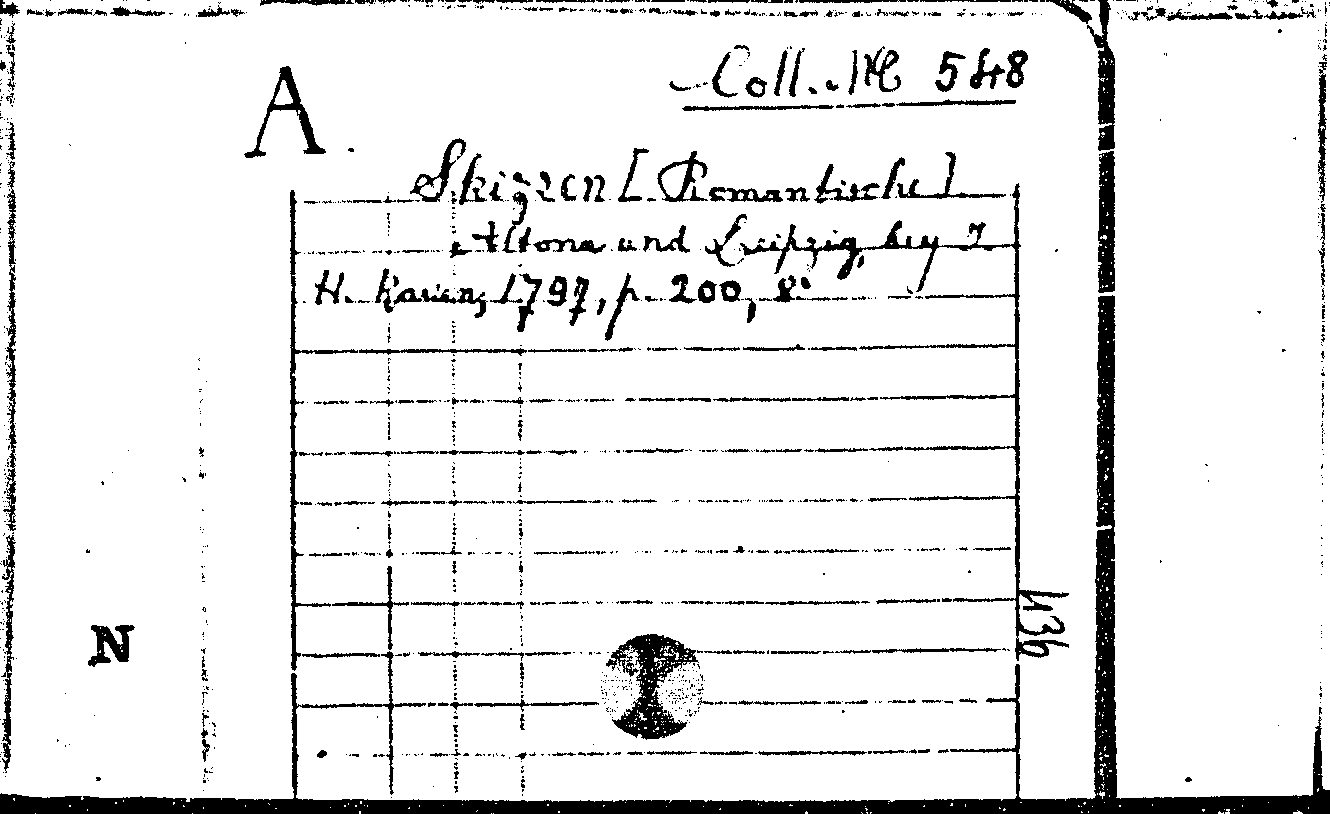 Coll. M 548
A.
Skizzen [Romantische]
Altona und Leipzig, bey J.
H. Kaven, 1797, p. 200, 8°
436
N